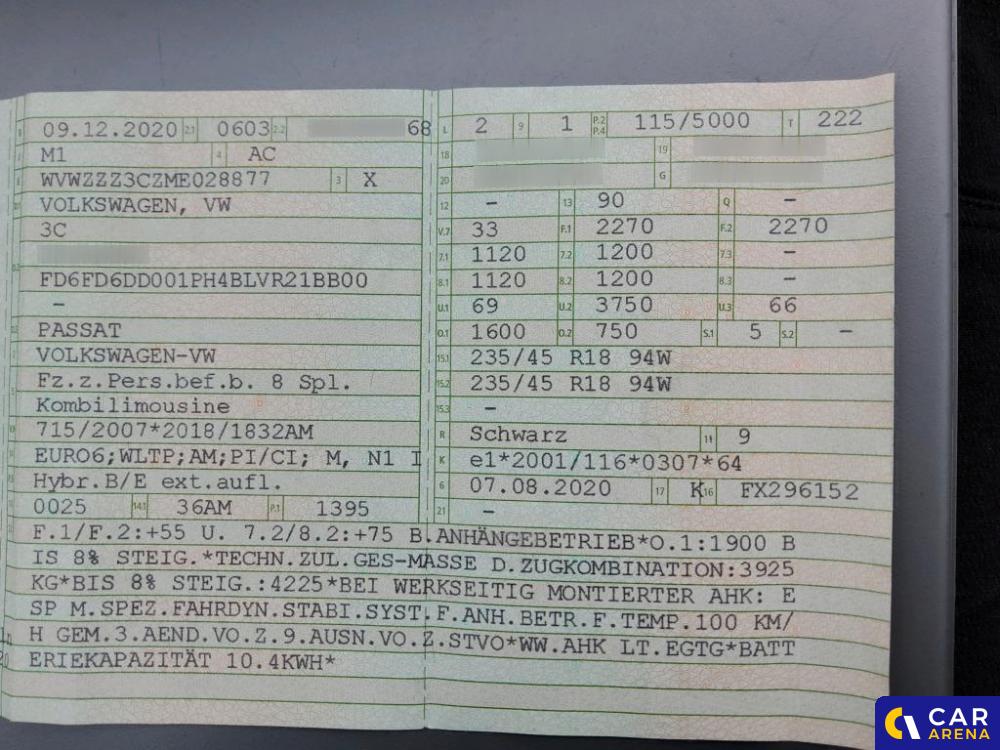 B 09.12.2020 2.1 0603 2.2 68
J M1 4 AC
E WVWZZZ3CZME028877 3 X
VOLKSWAGEN, VW
3C
FD6FD6DD001PH4BLVR21BB00
–
PASSAT
VOLKSWAGEN-VW
Fz.z.Pers.bef.b. 8 Spl.
Kombilimousine
715/2007*2018/1832AM
EURO6;WLTP;AM;PI/CI; M, N1 I
Hybr.B/E ext.aufl.
0025 14.1 36AM P.1 1395
L 2 9 1 P.2 P.4 115/5000 T 222
18 19
20 G
12 – 13 90 Q –
V.7 33 F.1 2270 F.2 2270
7.1 1120 7.2 1200 7.3 –
8.1 1120 8.2 1200 8.3 –
U.1 69 U.2 3750 U.3 66
O.1 1600 O.2 750 S.1 5 S.2 –
15.1 235/45 R18 94W
15.2 235/45 R18 94W
15.3 –
R Schwarz 11 9
K e1*2001/116*0307*64
6 07.08.2020 17 K 16 FX296152
21 –
F.1/F.2:+55 U. 7.2/8.2:+75 B.ANHÄNGEBETRIEB*O.1:1900 B
IS 8% STEIG.*TECHN.ZUL.GES-MASSE D.ZUGKOMBINATION:3925
KG*BIS 8% STEIG.:4225*BEI WERKSEITIG MONTIERTER AHK: E
SP M.SPEZ.FAHRDYN.STABI.SYST.F.ANH.BETR.F.TEMP.100 KM/
H GEM.3.AEND.VO.Z.9.AUSN.VO.Z.STVO*WW.AHK LT.EGTG*BATT
ERIEKAPAZITÄT 10.4KWH*
CAR
ARENA